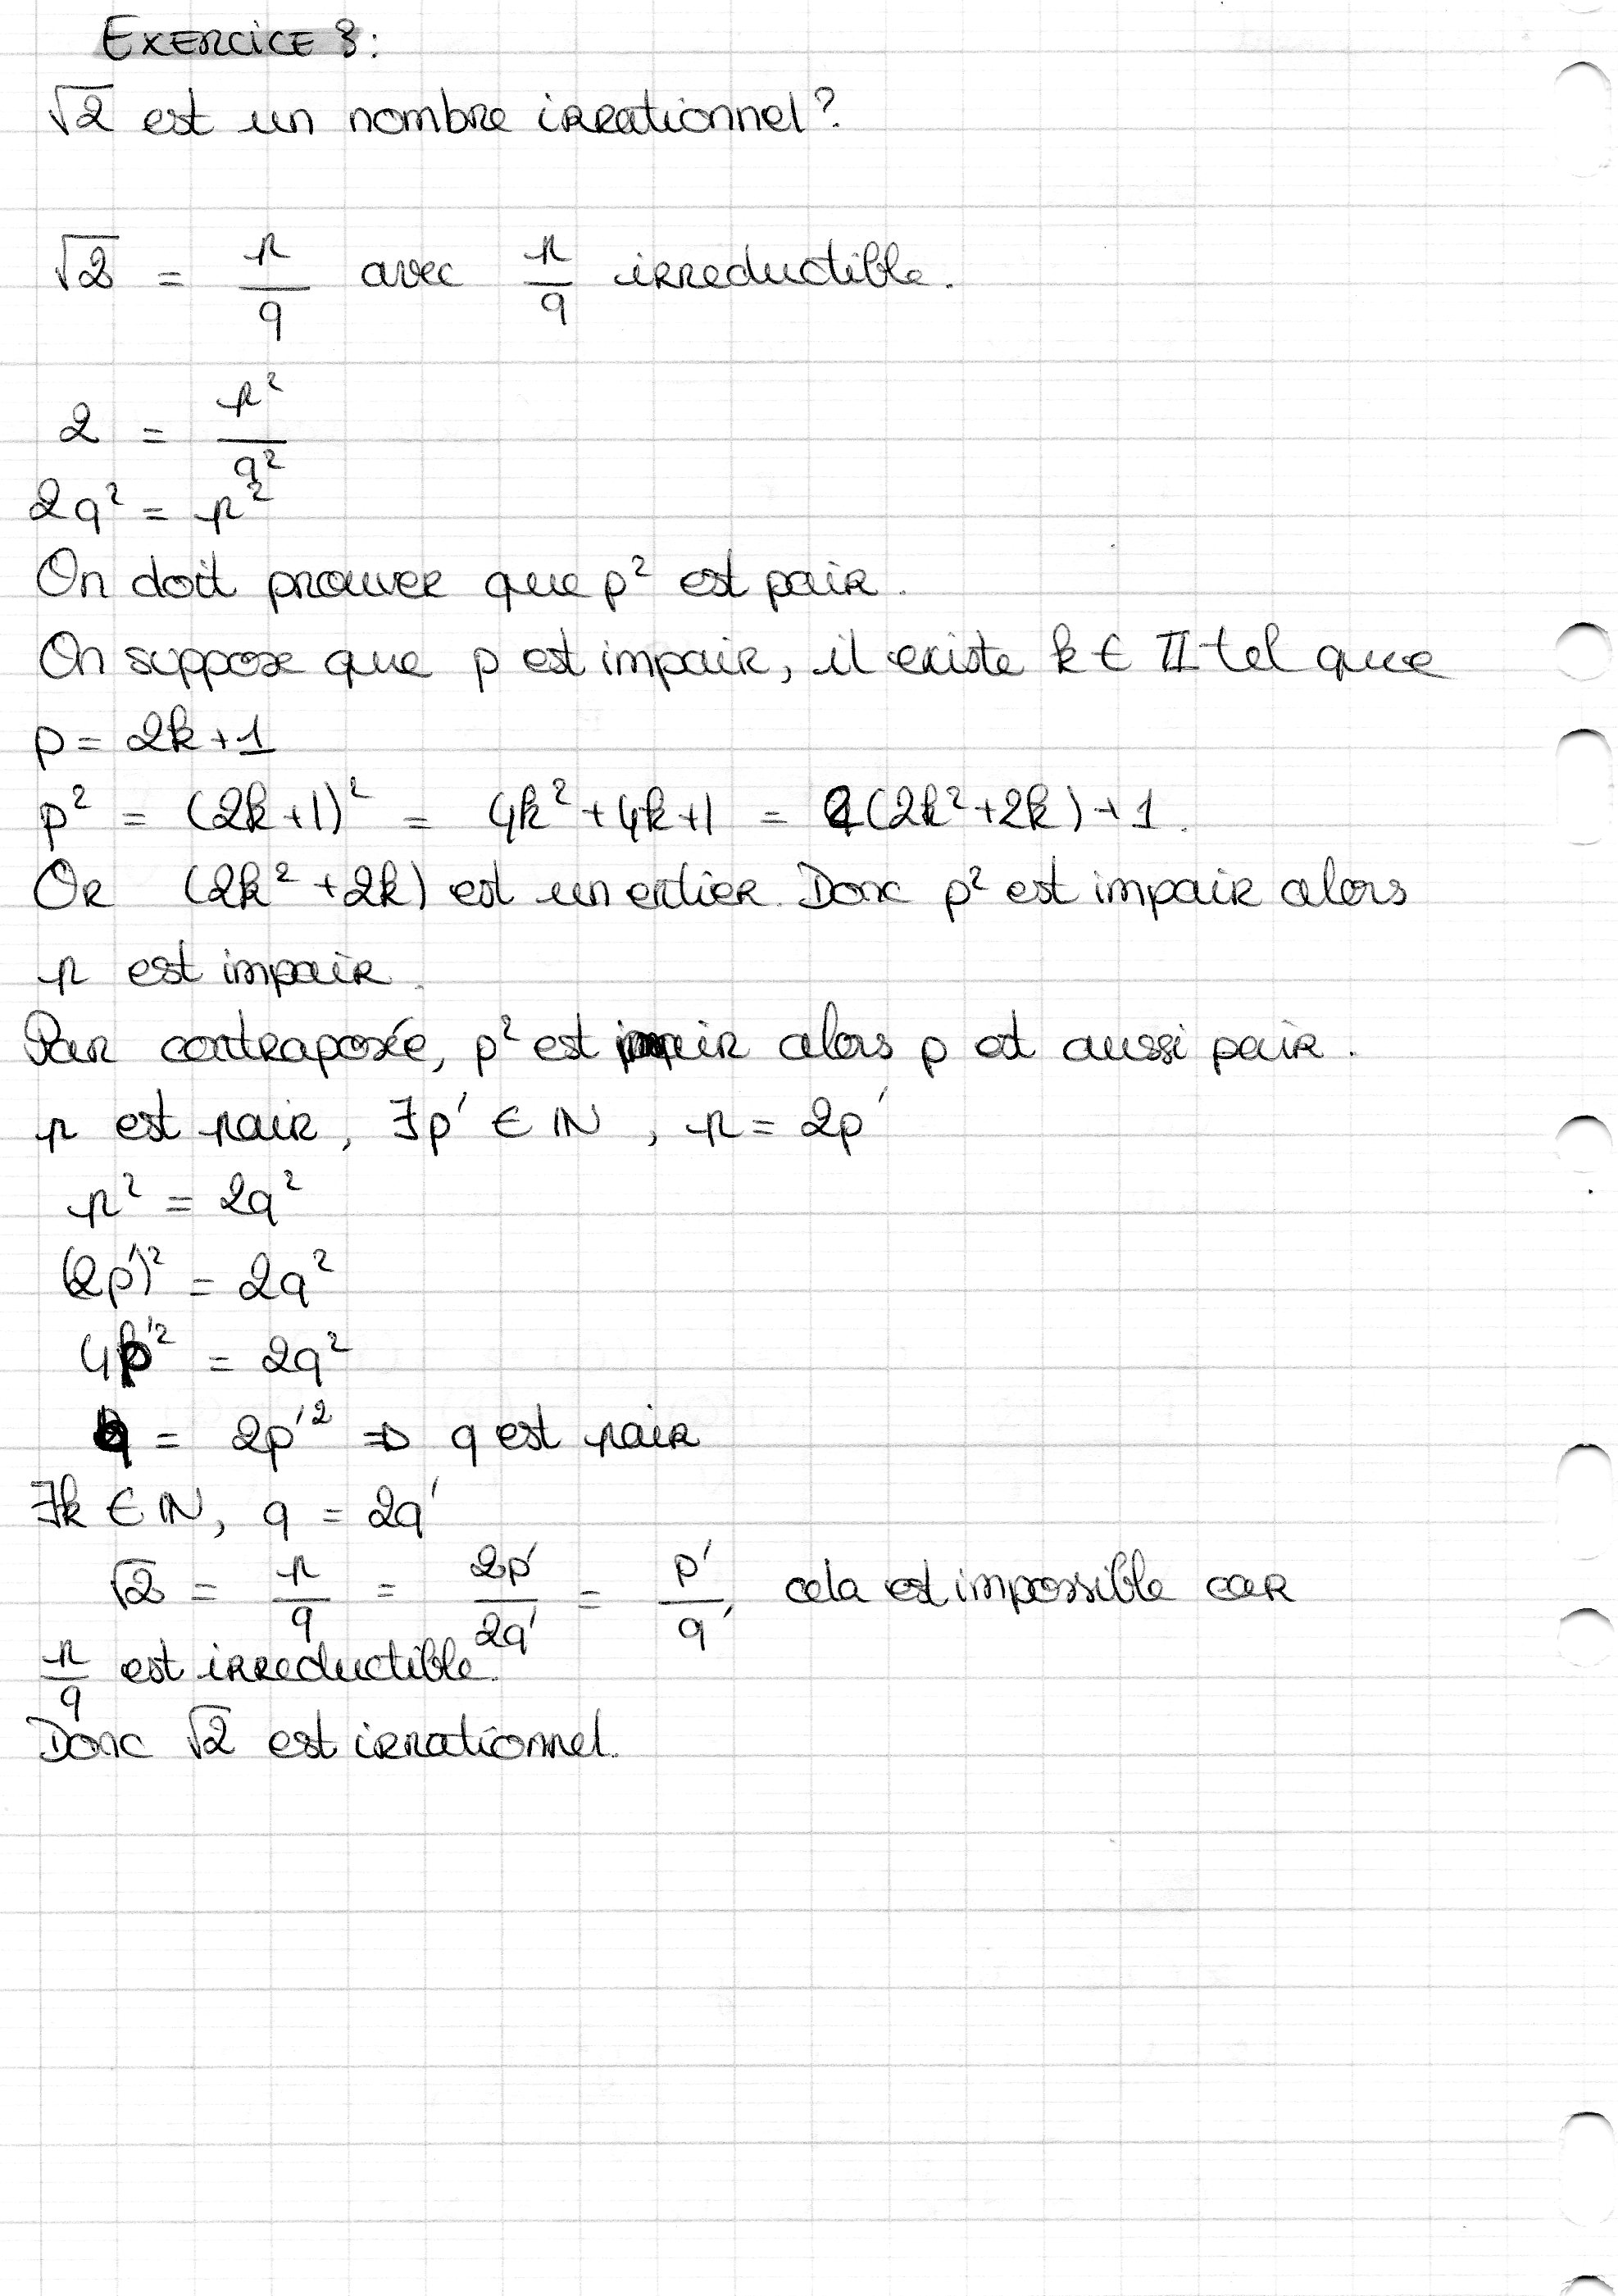 EXERCICE 3:
√2 est un nombre irrationnel?
√2 = p/q avec p/q irreductible.
2 = p²/q²
2q² = p²
On doit prouver que p² est pair.
On suppose que p est impair, il existe k ∈ ℤ tel que
p = 2k+1
p² = (2k+1)² = 4k²+4k+1 = 2(2k²+2k)+1.
Or (2k²+2k) est un entier. Donc p² est impair alors
p est impair.
Par contraposée, p² est pair alors p est aussi pair.
p est pair, ∃p' ∈ ℕ, p = 2p'
p² = 2q²
(2p')² = 2q²
4p'² = 2q²
q = 2p'² ⇒ q est pair
∃k ∈ ℕ, q = 2q'
√2 = p/q = 2p'/2q' = p'/q', cela est impossible car
p/q est irreductible.
Donc √2 est irrationnel.